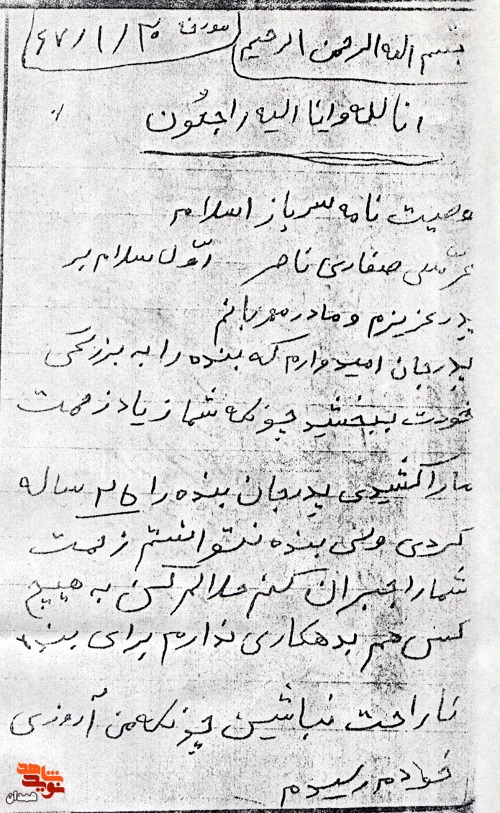 بسم اله الرحمن الرحیم مورخه ۶۷/۱/۳۰
انا لله و انا الیه راجعُون
وصیت نامه سرباز اسلام
صفاری ناصر اوّل سلام بر
پدر عزیزم و مادر مهربانم
پدر جان امیدوارم که بنده را به بزرگی
خودت ببخشید چونکه شما زیاد زحمت
مارا کشیدی پدر جان بنده را ۲۵ ساله
کردی ولی بنده نتوانستم زحمت
شما را جبران کنم حلالم کن به هیچ
کس هم بدهکاری ندارم برای بنده
ناراحت نباشین چونکه من آروزی
خودم رسیدم
نوید شاهد
همدان